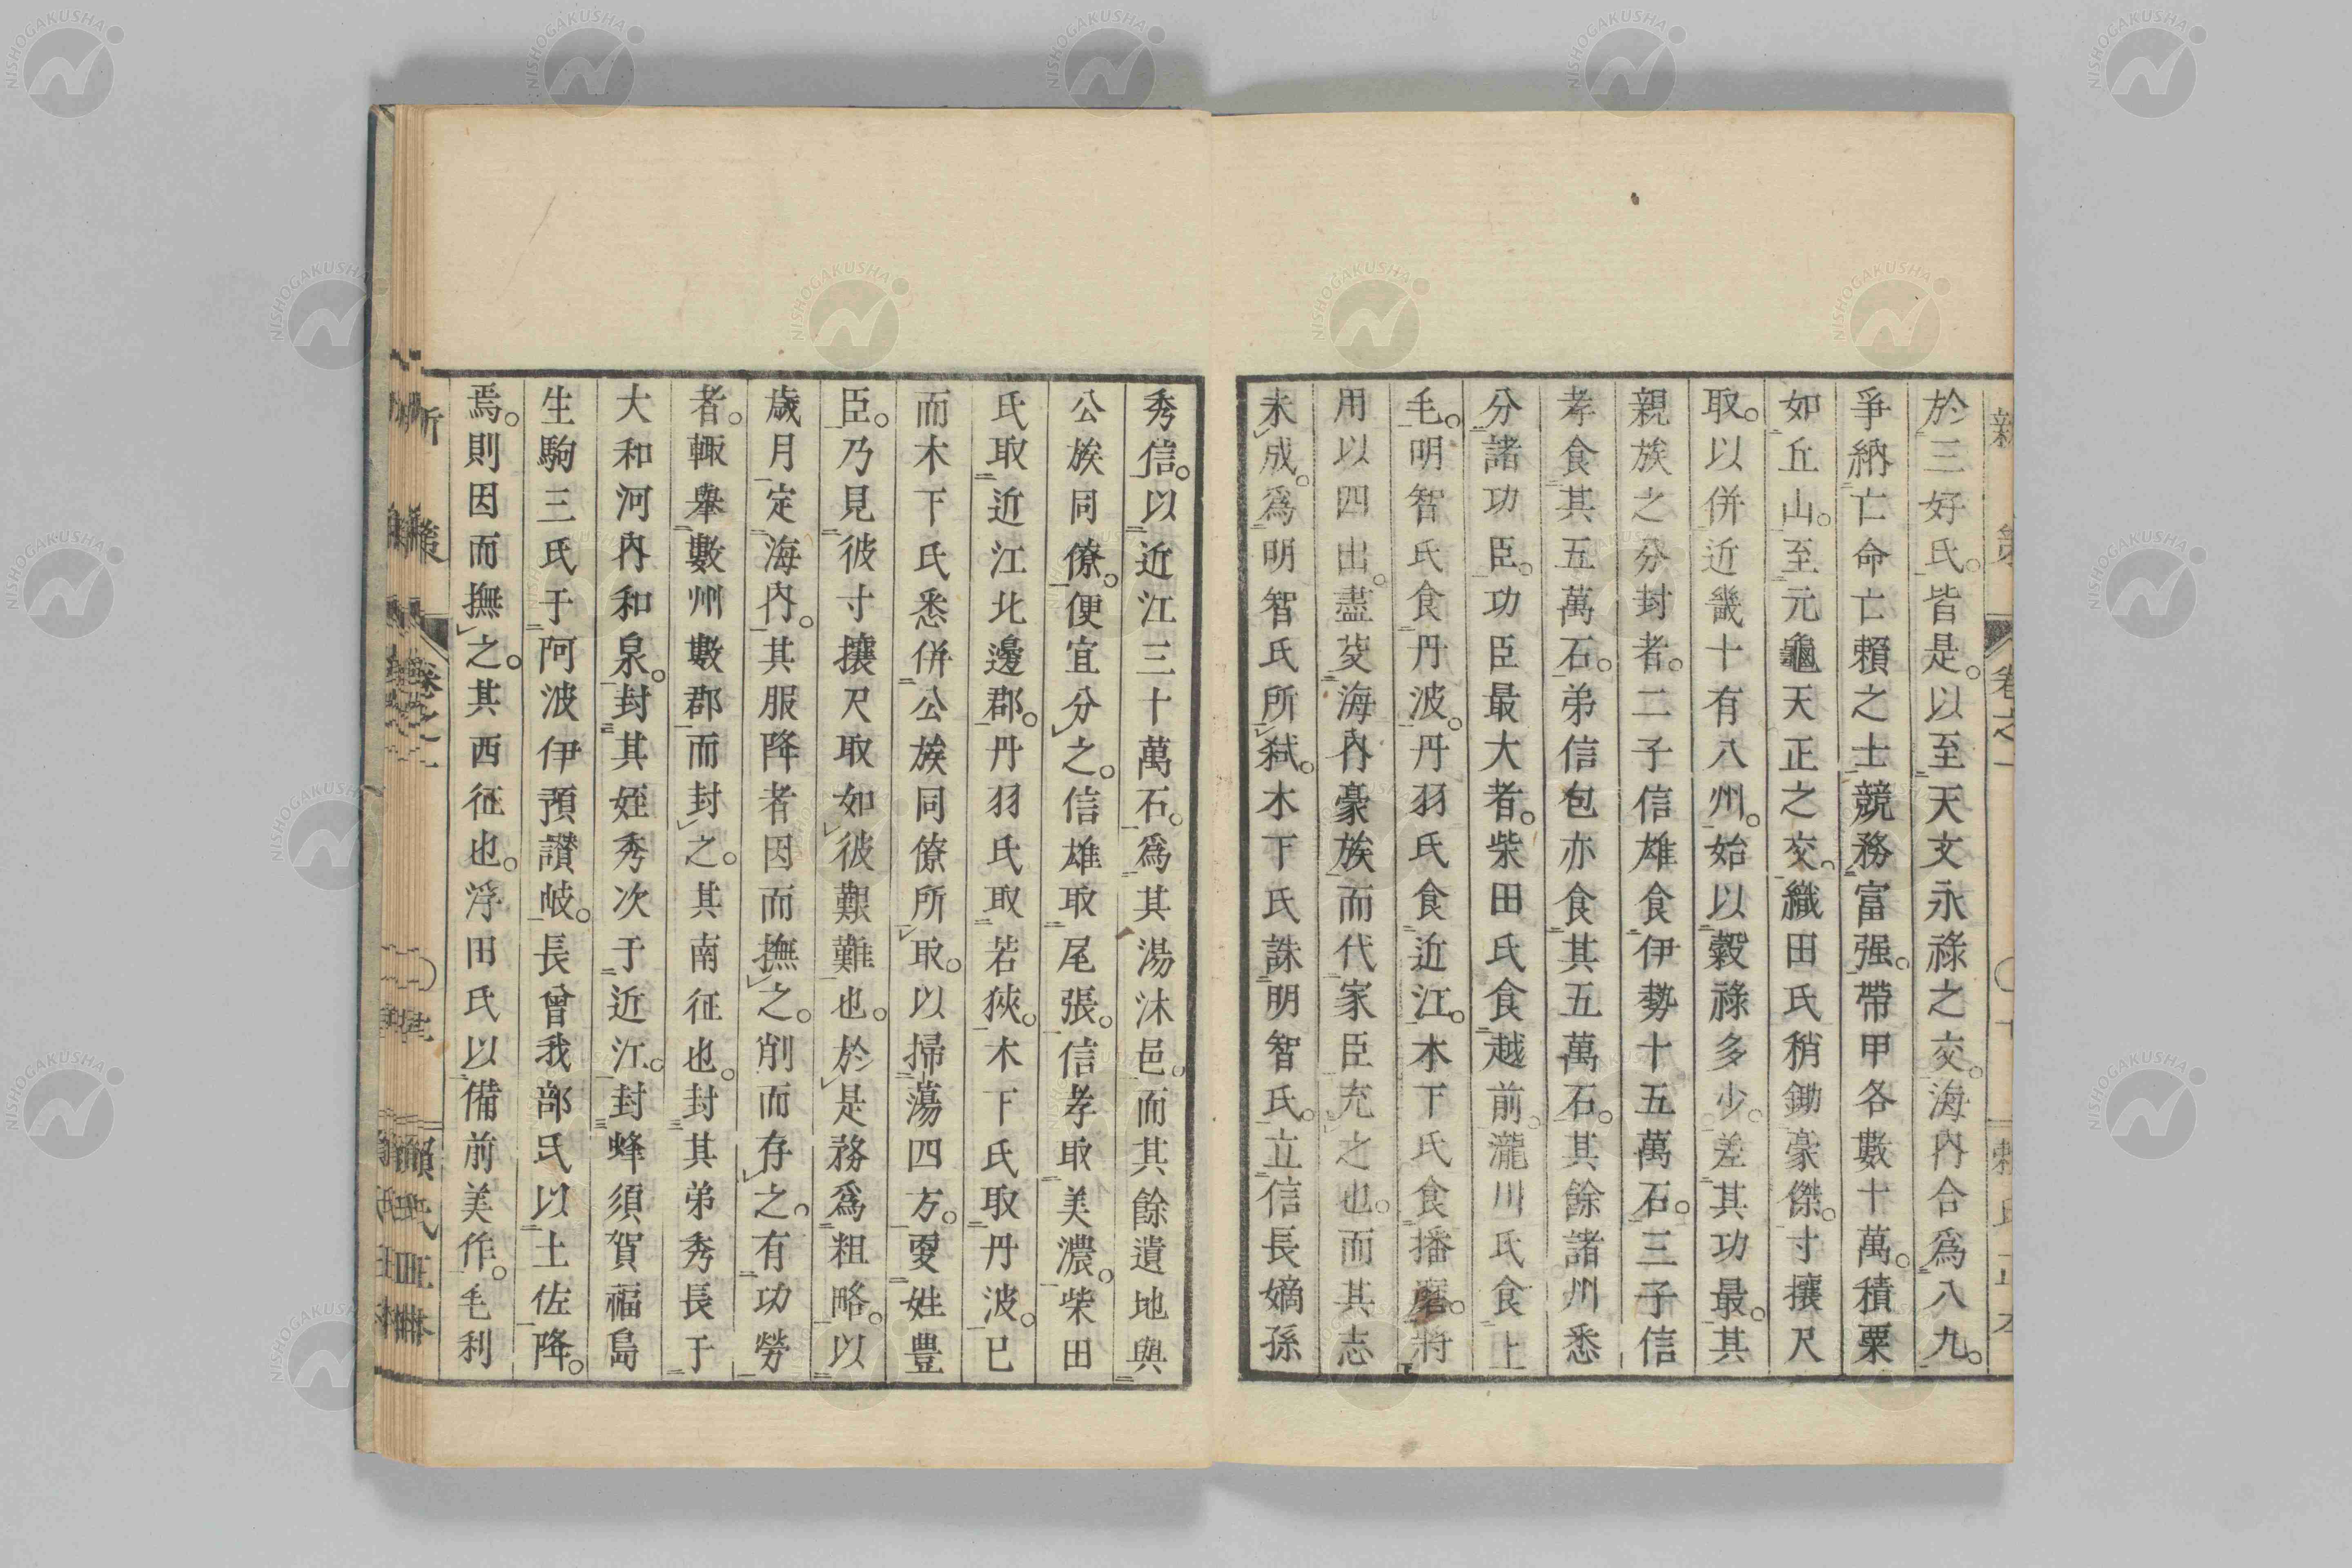 於三好氏。皆是。以至天文永祿之交。海内合爲八九。
爭納亡命亡賴之士。競務富强。帶甲各數十萬。積粟
如丘山。至元龜天正之交。織田氏稍鋤豪傑。寸攘尺
取。以併近畿十有八州。始以穀祿多少。差其功最。其
親族之分封者。二子信雄食伊勢十五萬石。三子信
孝食其五萬石。弟信包亦食其五萬石。其餘諸州悉
分諸功臣。功臣最大者。柴田氏食越前。瀧川氏食上
毛。明智氏食丹波。丹羽氏食近江。木下氏食播磨。將
用以四出。盡芟海内豪族。而代家臣充之也。而其志
未成。爲明智氏所弑。木下氏誅明智氏。立信長嫡孫
秀信。以近江三十萬石。爲其湯沐邑。而其餘遺地與
公族同僚。便宜分之。信雄取尾張。信孝取美濃。柴田
氏取近江北邊郡。丹羽氏取若狹。木下氏取丹波。已
而木下氏悉併公族同僚所取。以掃蕩四方。更姓豐
臣。乃見彼寸攘尺取如彼艱難也。於是務爲粗略。以
歲月定海内。其服降者因而撫之。削而存之。有功勞
者。輙舉數州數郡而封之。其南征也。封其弟秀長于
大和河内和泉。封其姪秀次于近江。封蜂須賀福島
生駒三氏于阿波伊預讃岐。長曾我部氏以土佐降。
焉。則因而撫之。其西征也。浮田氏以備前美作。毛利
新
策
卷之一
NISHOGAKUSHA